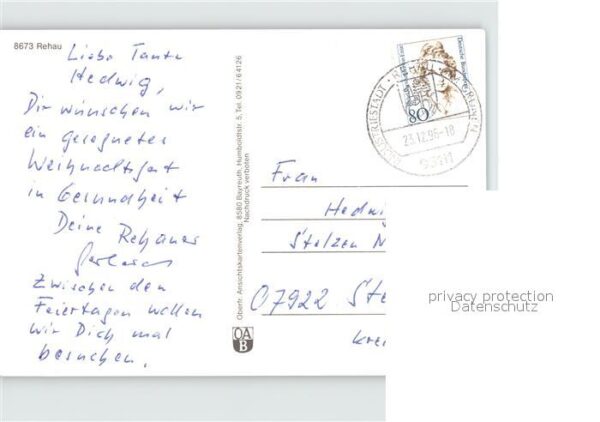 8673 Rehau
Liebe Tante
Hedwig,
Dir wünschen wir
ein gesegnetes
Weihnachtsfest
in Gesundheit
Deine Rehauer
Zwischen den
Feiertagen wollen
wir Dich mal
besuchen.
Oberfr. Ansichtskartenverlag, 8580 Bayreuth, Humboldtstr. 5, Tel. 0921/64126
Nachdruck verboten
OA
B
80
23.12.96-18
95111
Frau
Hedwig
Stelzen N
07922 Ste
Krei
privacy protection
Datenschutz